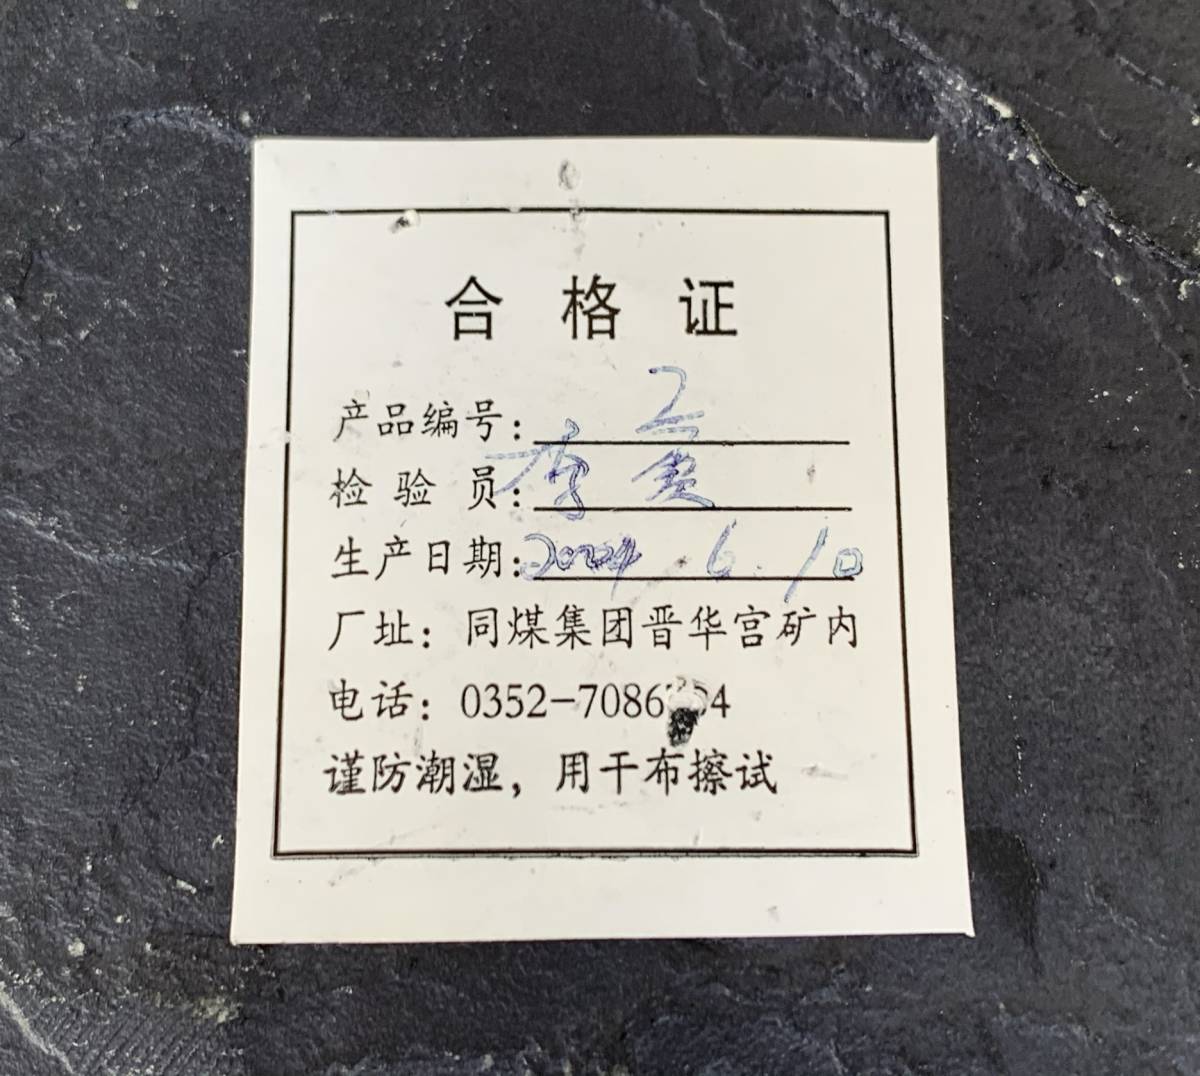 合格证
产品编号: 2
检验员: 李
生产日期: 2024.6.10
厂址: 同煤集团晋华宫矿内
电话: 0352-7086 04
谨防潮湿，用干布擦试